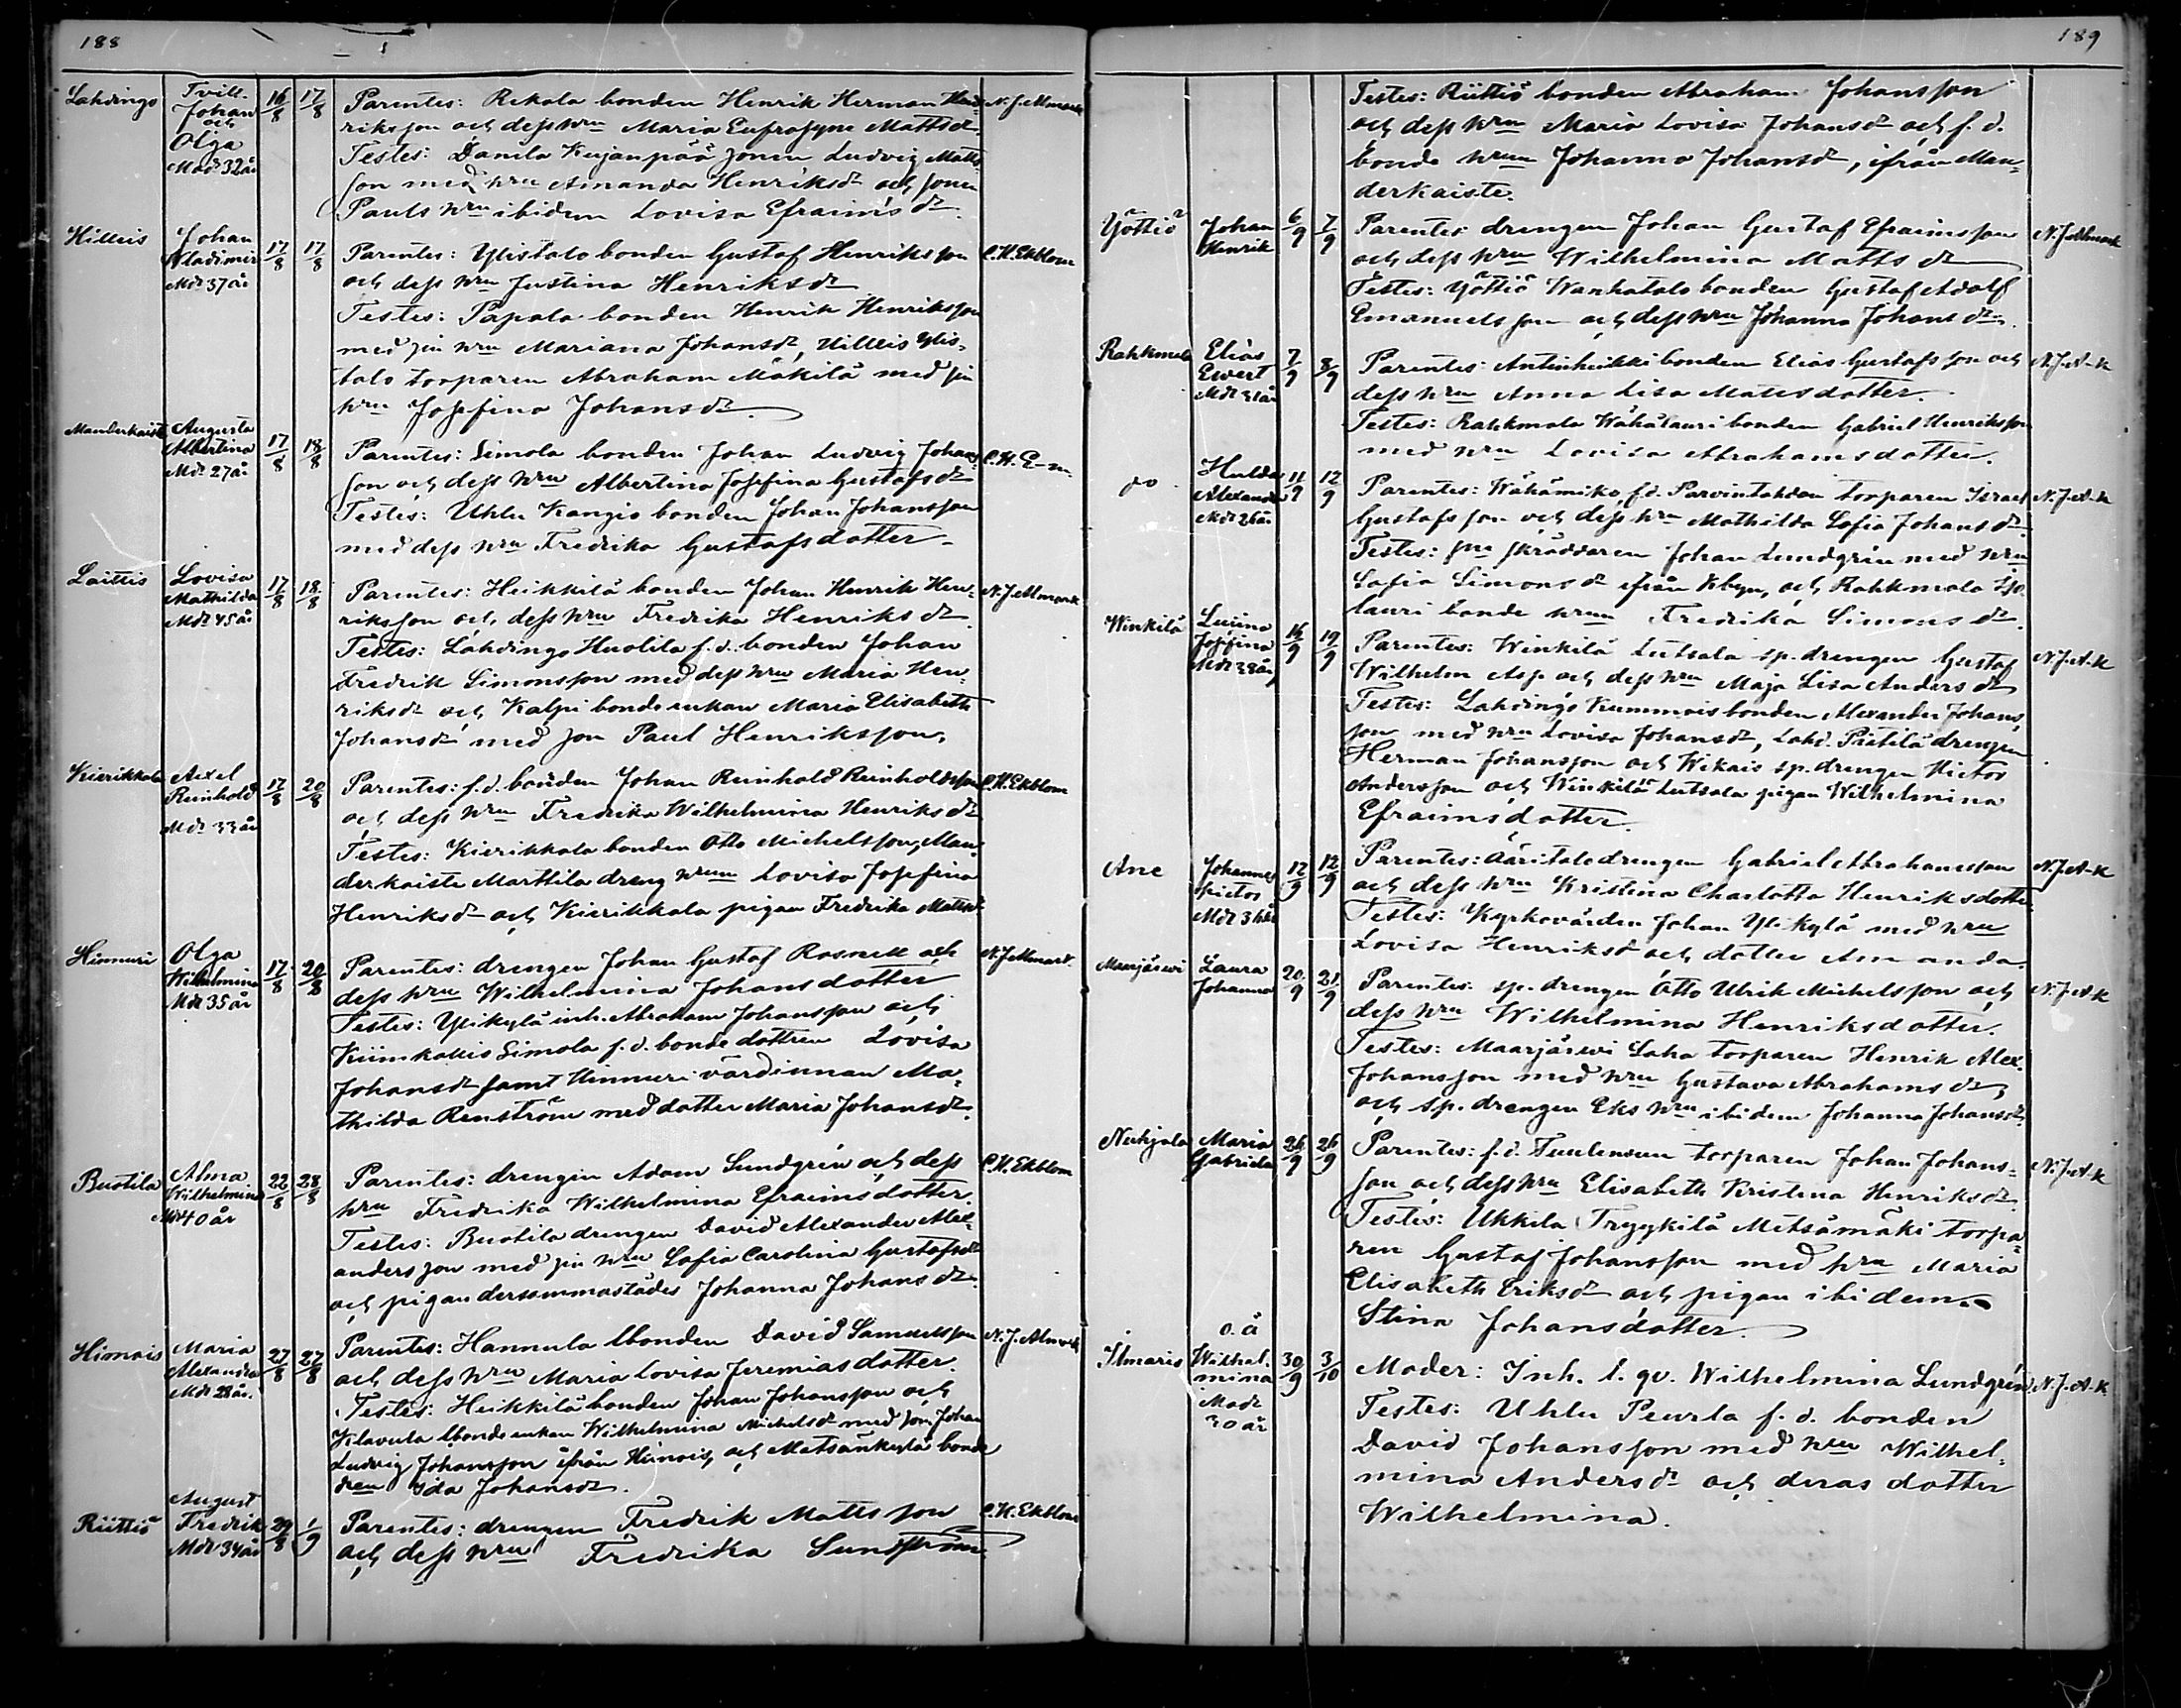 188
Lahdingo Tvill. Johan och Olga Mod. 32 år 16/8 17/8 Parentes: Rekola bonden Henrik Herman Hen- N. J. Almark
riksson och dess hru Maria Eufrosyne Mattsdr
Testes: Danila Kujanpää sonen Ludvig Matts
son med hru Amanda Henriksdr och sonen
Pauls hru ibidem Lovisa Efraimsdr.
Hilleis Johan Wladimir Mdr 37 år 17/8 17/8 Parentes: Ylistalo bonden Gustaf Henriksson C. H. Ekblom
och dess hru Justina Henriksdr
Testes: Papola bonden Henrik Henriksson
med sin hru Mariana Johansdr, Hilleis Ylis-
talo torparen Abraham Mäkilä med sin
hru Josefina Johansdr.
Manderkaiste Augusta Albertina Mdr 27 år 17/8 18/8 Parentes: Simola bonden Johan Ludvig Johans- C. H. E-m
son och dess hru Albertina Josefina Gustafsdr
Testes: Uhlu Kangio bonden Johan Johansson
med dess hru Fredrika Gustafsdotter.
Laittis Lovisa Mathilda Mdr 45 år 17/8 18/8 Parentes: Heikkilä bonden Johan Henrik Hen- N. J. Almark
riksson och dess hru Fredrika Henriksdr.
Testes: Lahdingo Huolila f.d. bonden Johan
Fredrik Simonsson med dess hru Maria Hen-
riksdr och Kalpi bonde enkan Maria Elisabeth
Johansdr med son Paul Henriksson.
Kierikkala Axel Reinhold Mdr 33 år 17/8 20/8 Parentes: f.d. bonden Johan Reinhold Reinholdsson C. H. Ekblom
och dess hru Fredrika Wilhelmina Henriksdr
Testes: Kierikkala bonden Otto Michelsson, Man-
derkaiste Marttila dreng hrun Lovisa Josefina
Henriksdr och Kierikkala pigan Fredrika Mattsdr
Hinnuri Olga Wilhelmina Mdr 35 år 17/8 20/8 Parentes: drengen Johan Gustaf Rosnell och N. J. Almark
dess hru Wilhelmina Johansdotter
Testes: Ylikylä inh. Abraham Johansson och
Kiimkallis Simola f.d. bonde dottren Lovisa
Johansdr samt Hinnuri värdinnan Ma-
thilda Renström med dotter Maria Johansdr.
Buotila Alma Wilhelmina Mdr 40 år 22/8 28/8 Parentes: drengen Adam Sundgrén och dess C. H. Ekblom
hru Fredrika Wilhelmina Efraimsdotter.
Testes: Buotila drengen David Alexander Alex-
andersson med sin hru Sofia Carolina Gustafsdr
och pigan dersammastädes Johanna Johansdr.
Himois Maria Alexandra Mdr 28 år. 27/8 27/8 Parentes: Hannula lbonden David Samuelsson N. J. Almark
och dess hru Maria Lovisa Jeremiasdotter.
Testes: Heikkilä bonden Johan Johansson och
Klavula lbonde enkan Wilhelmina Michelsdr med son Johan
Ludvig Johansson ifrån Himois, och Metsänkylä bonde
hrun Ida Johansdr.
Riittiö August Fredrik Mdr 34 år 29/8 1/9 Parentes: drengen Fredrik Mattsson C. H. Ekblom
och dess hru Fredrika Sundström.
189
Testes: Riittiö bonden Abraham Johansson
och dess hru Maria Lovisa Johansdr och f.d.
bonde hrun Johanna Johansdr, ifrån Man-
derkaiste.
Yöttiö Johan Henrik 6/9 7/9 Parentes: drengen Johan Gustaf Efraimsson N. J. Almark
och dess hru Wilhelmina Mattsdr
Testes: Yöttiö Wanhatalo bonden Gustaf Adolf
Emanuelsson och dess hru Johanna Johansdr.
Rahkmala Elias Ewert Mdr 31 år 7/9 8/9 Parentes: Antinheikki bonden Elias Gustafsson och N. J. A-k
dess hru Anna Lisa Matsdotter.
Testes: Rahkmala Wähälauri bonden Gabriel Henriksson
med hru Lovisa Abrahamsdotter.
do Hulda Alexandra Mdr 26 år 11/9 12/9 Parentes: Wähämiko, f.d. Parvintahdon torparen Israel N. J. A-k
Gustafsson och dess hru Mathilda Sofia Johansdr.
Testes: skräddaren Johan Lundgrén med hru
Sofia Simonsdr ifrån Kbyn, och Rahkmala Iso
lauri bonde hrun Fredrika Simonsdr.
Winkilä Luiina Josefina Mdr 38 år 16/9 19/9 Parentes: Winkilä Lutsala sp. drengen Gustaf N. J. A-k
Wilhelm Asp och dess hru Maja Lisa Andersdr
Testes: Lahdingo Kummois bonden Alexander Johans-
son med hru Lovisa Johansdr, Lahd. Pietilä drengen
Herman Johansson och Wekais sp. drengen Victor
Andersson och Winkilä Lutsala pigan Wilhelmina
Efraimsdotter.
Ane Johannes Victor Mdr 36 år 12/9 12/9 Parentes: Ääritalo drengen Gabriel Abrahamsson N. J. A-k
och dess hru Kristina Charlotta Henriksdotter.
Testes: Kyrkovärden Johan Yli Kylä med hru
Lovisa Henriksdr och dotter Amanda.
Maarjärwi Laura Johanna 20/9 21/9 Parentes: sp. drengen Otto Ulrik Michelsson och N. J. A-k
dess hru Wilhelmina Henriksdotter.
Testes: Maarjärwi Laha torparen Henrik Alex.
Johansson med hru Gustava Abrahamsdr,
och sp. drengen Eks hru ibidem Johanna Johansdr.
Nuhjala Maria Gabriela 26/9 26/9 Parentes: f.d. Tuulensuu torparen Johan Johans- N. J. A-k
son och dess hru Elisabeth Kristina Henriksdr.
Testes: Ukkila Tryykilä Metsämäki torpa-
ren Gustaf Johansson med hru Maria
Elisabeth Eriksdr och pigan ibidem
Stina Johansdotter.
Ilmaris o. ä Wilhel- mina Modr 30 år 30/9 3/10 Moder: Inh. l. qv. Wilhelmina Lundgrén N. J. A-k
Testes: Uhlu Peurla f.d. bonden
David Johansson med hru Wilhel-
mina Andersdr och deras dotter
Wilhelmina.